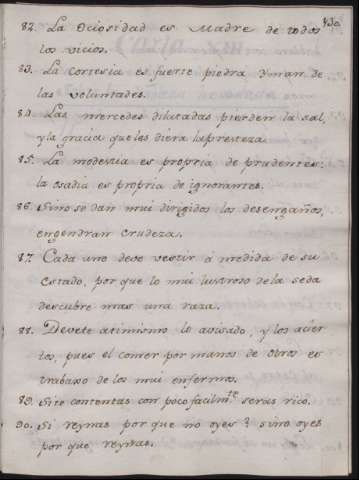 430
82. La Ociosidad es Madre de todos
los vicios.
83. La cortesia es fuerte piedra Yman de
las voluntades.
84. Las mercedes dilatadas pierden la sal,
y la gracia que les diera la presteza.
85. La modestia es propria de prudentes:
la osadia es propria de ignorantes.
86. Sino se dan mui dirigidos los desengaños,
engendran crudeza.
87. Cada uno deve vestir â medida de su
estado, por que lo mui lustroso de la seda
descubre mas una raza.
88. Devete atimismo lo avisado, y los acier
tos, pues el comer por manos de otros es
trabaxo de los mui enfermos.
89. Si te contentas con poco facilmte serás rico.
90. Si reynas por que no oyes? sino oyes
por que reynas.